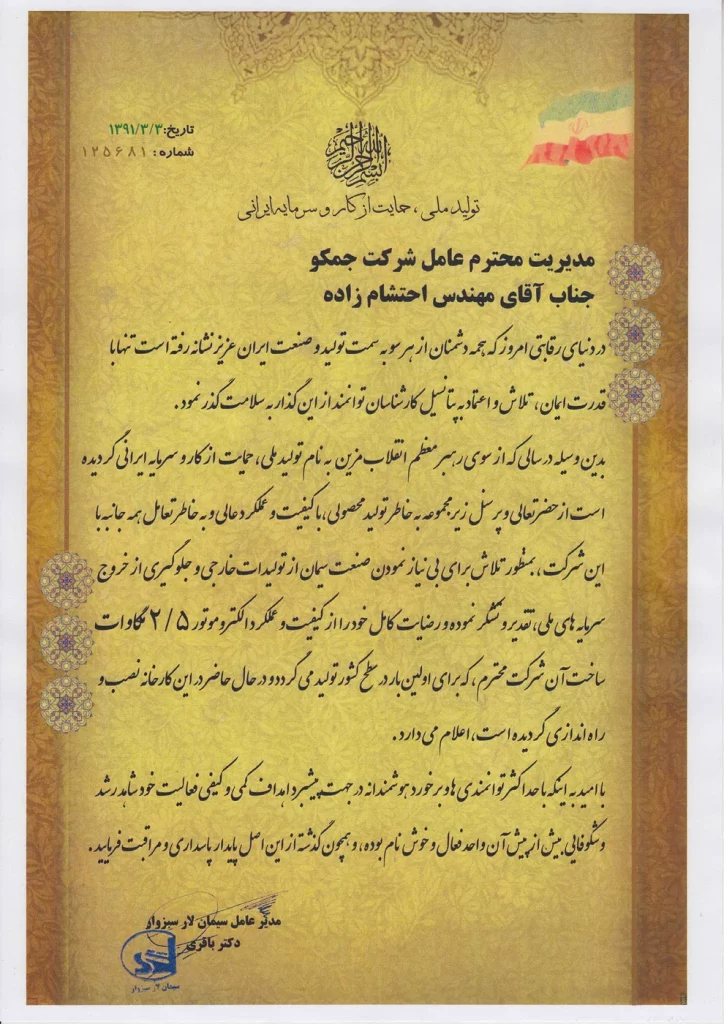 تاریخ: ۱۳۹۱/۳/۳
شماره: ۱۲۵۶۸۱
بسم الله الرحمن الرحیم
تولید ملی، حمایت از کار و سرمایه ایرانی
مدیریت محترم عامل شرکت جمکو
جناب آقای مهندس احتشام زاده
در دنیای رقابتی امروز که همه دشمنان از هر سو به سمت تولید و صنعت ایران عزیز نشانه رفته است تنها با
قدرت ایمان، تلاش و اعتماد به پتانسیل کارشناسان توانمند از این گذار به سلامت گذر نمود.
بدین وسیله در سالی که از سوی رهبر معظم انقلاب مزین به نام تولید ملی، حمایت از کار و سرمایه ایرانی گردیده
است از حضرتعالی و پرسنل زیر مجموعه به خاطر تولید محصولی، با کیفیت و عملکرد عالی و به خاطر تعامل همه جانبه با
این شرکت، بمنظور تلاش برای بی نیاز نمودن صنعت سیمان از تولیدات خارجی و جلوگیری از خروج
سرمایه های ملی، تقدیر و تشکر نموده و رضایت کامل خود را از کیفیت و عملکرد الکتروموتور ۲/۵ مگاوات
ساخت آن شرکت محترم، که برای اولین بار در سطح کشور تولید می گردد و در حال حاضر در این کارخانه نصب و
راه اندازی گردیده است، اعلام می دارد.
با امید به اینکه با حداکثر توانمندی ها و برخورد هوشمندانه در جهت پیشبرد اهداف کمی و کیفی فعالیت خود شاهد رشد
و شکوفایی بیش از پیش آن واحد فعال و خوش نام بوده، و همچون گذشته از این اصل پایدار پاسداری و مراقبت فرمایید.
مدیر عامل سیمان لار سبزوار
دکتر باقری
سیمان لار سبزوار